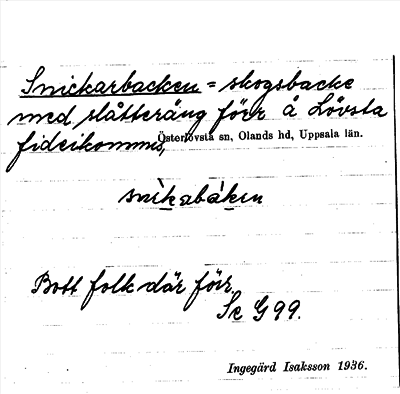 Snickarbacken = skogsbacke
med slåtteräng förr å Lövsta
fideikommis,
Österlövsta sn, Olands hd, Uppsala län.
snìkabáken
Bott folk där förr.
Se G 99.
Ingegärd Isaksson 1936.